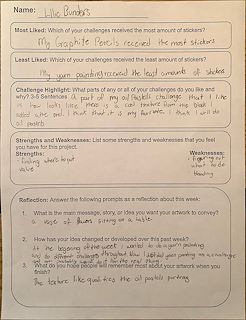 Name: Lillie Bunders
Most Liked: Which of your challenges received the most amount of stickers?
My Graphite Pencils received the most stickers
Least Liked: Which of your challenges received the least amount of stickers?
My yarn painting received the least amounts of stickers
Challenge Highlight: What parts of any or all of your challenges do you like and
why? 3-5 Sentences A part of my oil pastels challenge that I like
is how looks like there is a cool texture from the black
added with red. I think that it is my favorite. I think I will do
oil pastels
Strengths and Weaknesses: List some strengths and weaknesses that you
feel you have for this project.
Strengths:
Weaknesses:
• finding where to put
value
• figuring out
what to do
• blending
Reflection: Answer the following prompts as a reflection about this week:
1. What is the main message, story, or idea you want your artwork to convey?
a vase of flowers sitting on a table
2. How has your idea changed or developed over this past week?
At the beginning of the week I wanted to do a yarn painting
and do different challenges throughout
3. What do you hope people will remember most about your artwork when you
finish?
The texture like qualities the oil pastels portray